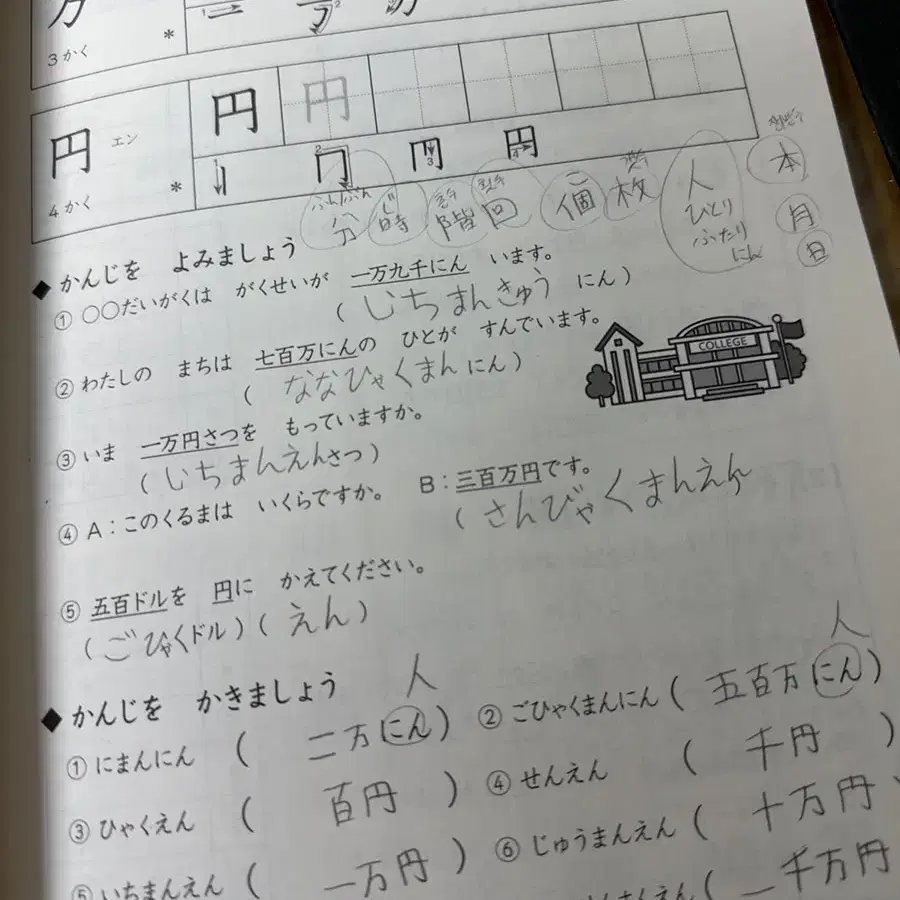 3かく
*
円 エン
4かく
*
円 円
1 2 3 4
ふん ぷん
分 時 階 回 個 枚 人 本
じ
こ
ひとり
ふたり
にん
月
日
◆かんじを よみましょう
① 〇〇だいがくは がくせいが 一万九千にん います。
(じちまんきゅう にん)
② わたしの まちは 七百万にんの ひとが すんでいます。
(ななひゃくまん にん)
COLLEGE
③ いま 一万円さつを もっていますか。
(いちまんえんさつ)
④ A:このくるまは いくらですか。 B:三百万円です。
(さんびゃくまんえん
⑤ 五百ドルを 円に かえてください。
(ごひゃくドル)(えん)
◆かんじを かきましょう
人 人
① にまんにん (二万にん) ② ごひゃくまんにん (五百万にん)
③ ひゃくえん (百円) ④ せんえん (千円)
⑤ いちまんえん (一万円) ⑥ じゅうまんえん (十万円
千万円